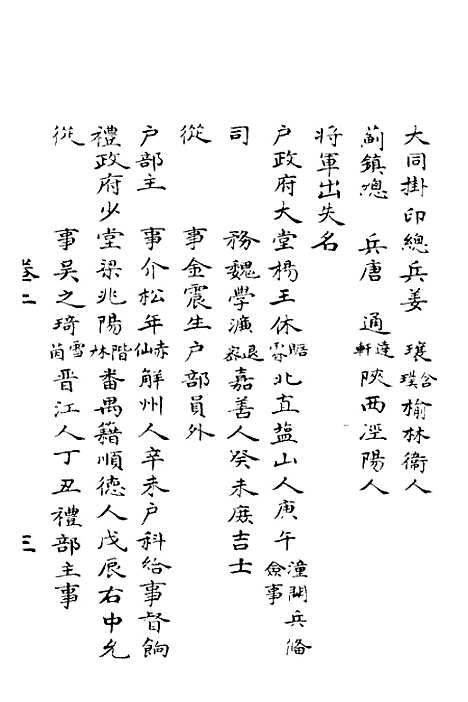 大同掛印總兵姜　瓖含璞榆林衛人
薊鎮總　兵唐　通達軒陝西涇陽人
將軍出失名
戶政府大堂楊王休北直盐山人庚午潼關兵備僉事
司　務魏學濂嘉善人癸未庶吉士
從　事金震生戶部員外
户部主　事介松年赤仙解州人辛未戶科給事督餉
禮政府少堂梁兆陽階林番禺籍順德人戊辰右中允
從　事吳之琦雪菌晋江人丁丑禮部主事
卷二　三